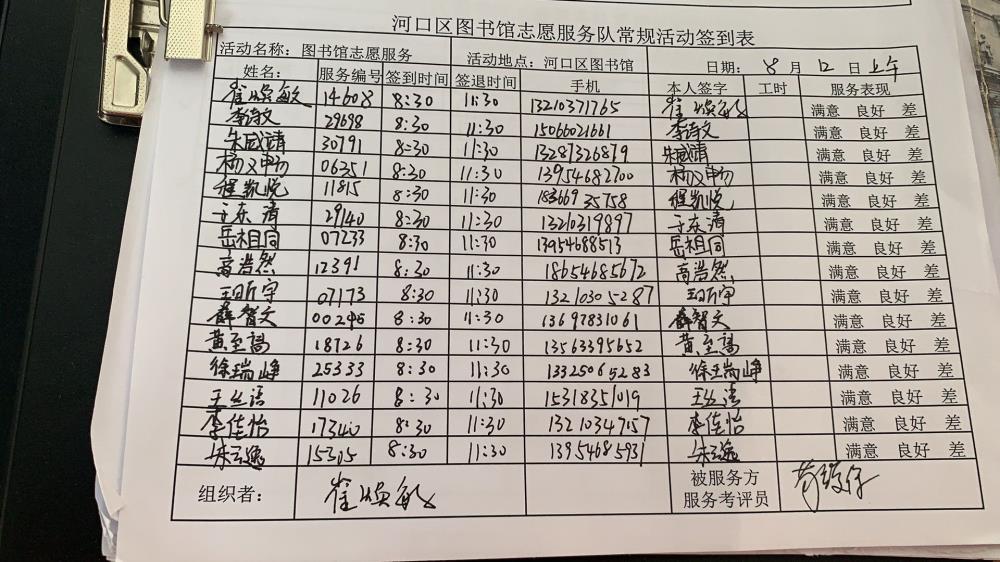 河口区图书馆志愿服务队常规活动签到表
活动名称：图书馆志愿服务 活动地点：河口区图书馆 日期： 8 月 12 日 上午
姓名： 服务编号 签到时间 签退时间 手机 本人签字 工时 服务表现
崔焕敏 14608 8:30 11:30 13210371765 崔焕敏 满意 良好 差
李诗文 29698 8:30 11:30 15066021661 李诗文 满意 良好 差
朱咸靖 30791 8:30 11:30 13287326879 朱咸靖 满意 良好 差
杨又申 06351 8:30 11:30 13954682700 杨又申 满意 良好 差
程凯悦 11815 8:30 11:30 18366935758 程凯悦 满意 良好 差
于东清 29140 8:30 11:30 13210319897 于东清 满意 良好 差
岳祖同 07233 8:30 11:30 13954688513 岳祖同 满意 良好 差
高浩然 12391 8:30 11:30 18654685672 高浩然 满意 良好 差
王昕宇 07173 8:30 11:30 13210305287 王昕宇 满意 良好 差
薛智文 8:30 11:30 13697831061 薛智文 满意 良好 差
黄至高 18726 8:30 11:30 13563395652 黄至高 满意 良好 差
徐瑞峥 25333 8:30 11:30 13325065283 徐瑞峥 满意 良好 差
王丝语 11026 8:30 11:30 15318351019 王丝语 满意 良好 差
李佳怡 17340 8:30 11:30 13210347157 李佳怡 满意 良好 差
朱云逸 15305 8:30 11:30 13954685931 朱云逸 满意 良好 差
组织者： 崔焕敏 被服务方
服务考评员